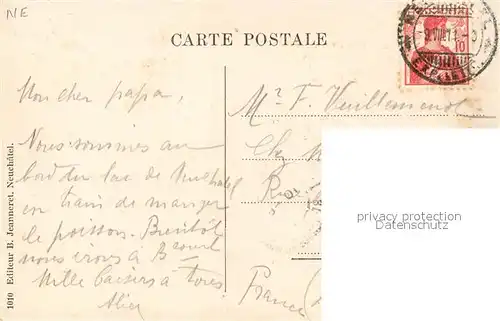 NE
CARTE POSTALE
Mon cher papa,
Nous sommes au
bord du lac de Neuchâtel
en train de manger
le poisson. Bientôt
nous irons à
Mille baisers à tous
Mr F. Vuillemenot
Chez
France
10
1010 Editeur B. Jeanneret, Neuchâtel.
privacy protection
Datenschutz